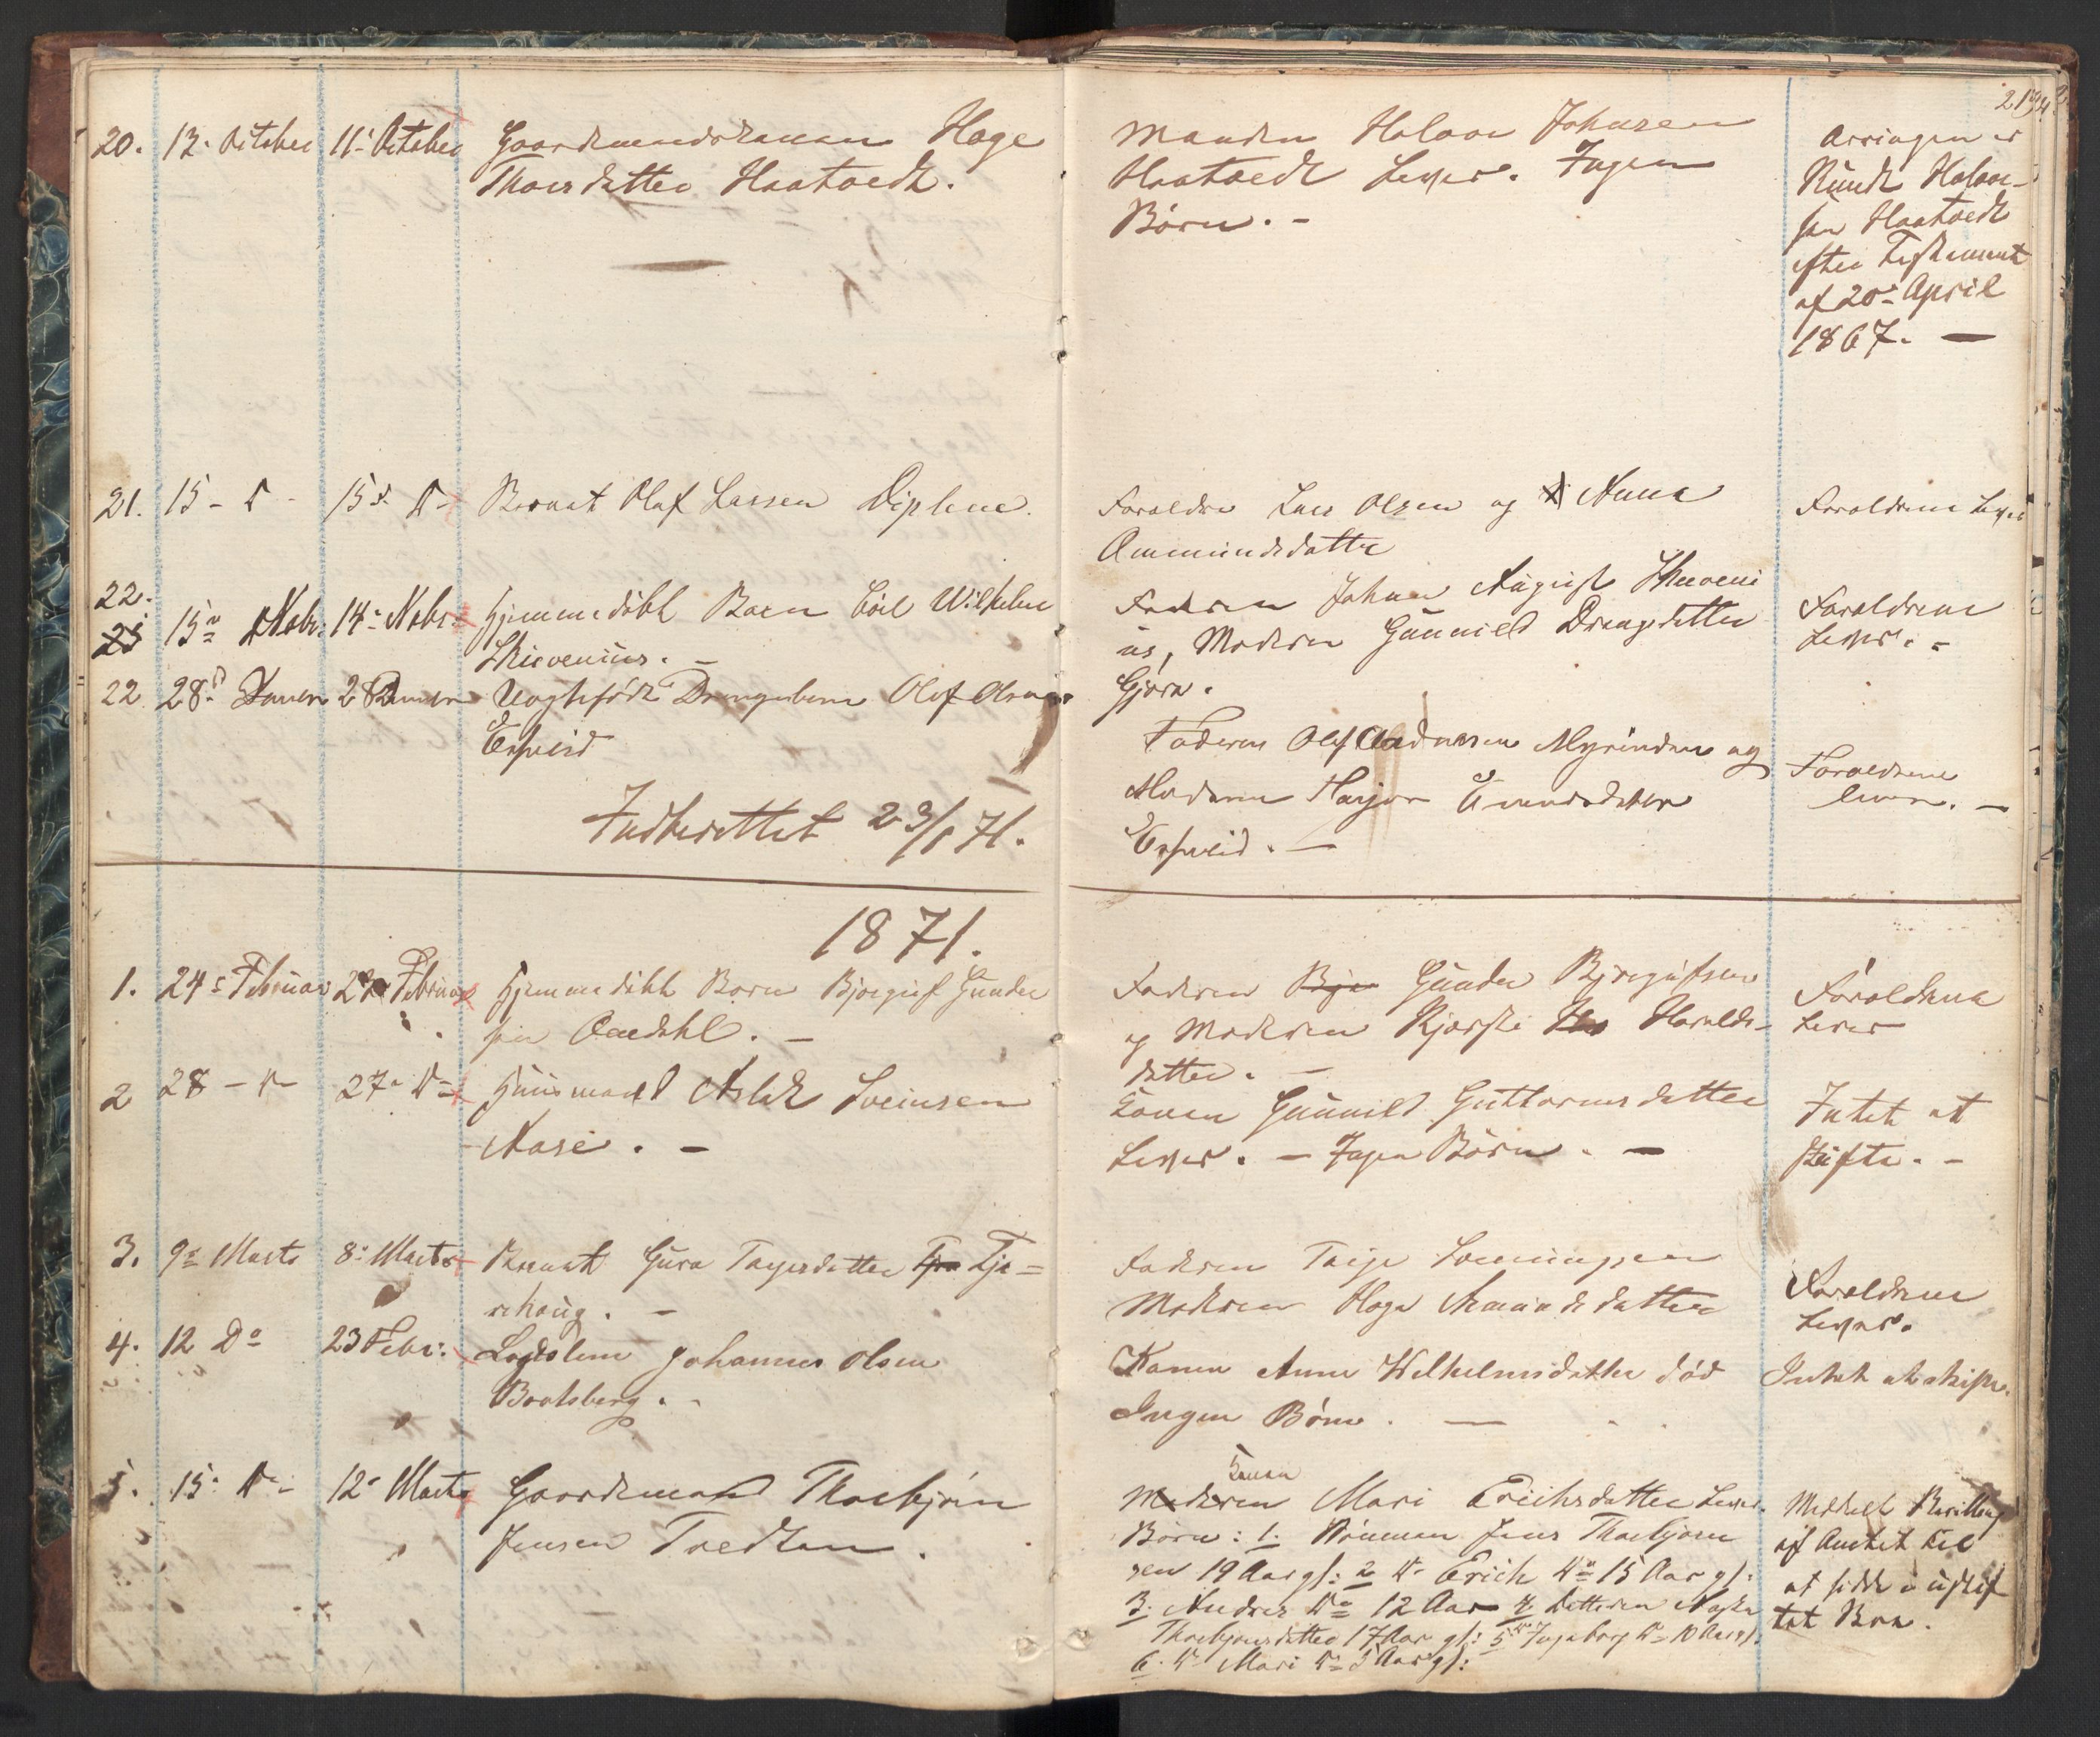 20. 12. October 11. October Gaardmandskonen Hage
Thorsdatter Haatvedt.
Manden Halvor Johnsen
Haatvedt Lever. Ingen
Børn. -
213
Arvingen er
Knudt Halvor-
sen Haatvedt
efter Testament
af 20. April
1867. -
21. 15 - D - 15. D - Olaf Larsen Diplene.
Foraldre Lars Olsen og Anne
Ammundsdatter
Foraldrene Lever
22. 15 Nobr. 14. Nobr. Hjemmedøbt Barn Carl Wilhelm
Faderen Johan August
us, Moderen Gunnild Drengsdatter
Gjøra.
Foraldrene
Lever. -
22 28. 28 Drengebarn Olaf Olsen
Faderen Olaf Andersen og
Moderen
Foraldrene
lever. -
Indberettet 23/1 71.
1871.
1. 24. Februar Februar Hjemmedøbt Barn Bjorgulf Gunder
sen
Faderen Gunder Bjorgulfsen
og Moderen Kjersti Haralds-
datter. -
Foraldrene
Lever
2 28 - D - 27. D - Huusmand Aslak Sveinsen
Aase. -
Konen Gunnild Guttormsdatter
Lever. - Ingen Børn. -
Intet at
skifte. -
3. 9. Marts 8. Marts Gura Taresdatter Tje=
rehaug. -
Faderen Tarje
Moderen Hage Amundsdatter
Foraldrene
Lever.
4. 12 Do 23 Febr. Lægdslem Johannes Olsen
Bootsberg. -
Konen Anne Wilhelmsdatter død
Ingen Børn. -
Intet at skifte.
5. 15. D - 12. Marts Gaardmand Thorbjørn
Jensen Tredten.
Konen
Moderen Mari Erichsdatter Lever.
Børn: 1. Sønnen Jens Thorbjørn
sen 19 Aar gl: 2 D. Erich D. 15 Aar gl.
3. Andres D. 12 Aar 4. Datteren
Thorbjørnsdatter 17 Aar gl: 5 Ingeborg D. 10 Aar gl.
6. D. Mari D. 5 Aar gl:
Meddelt Bevilling
af Amtet til
at sidde i uskif
tet Boe.